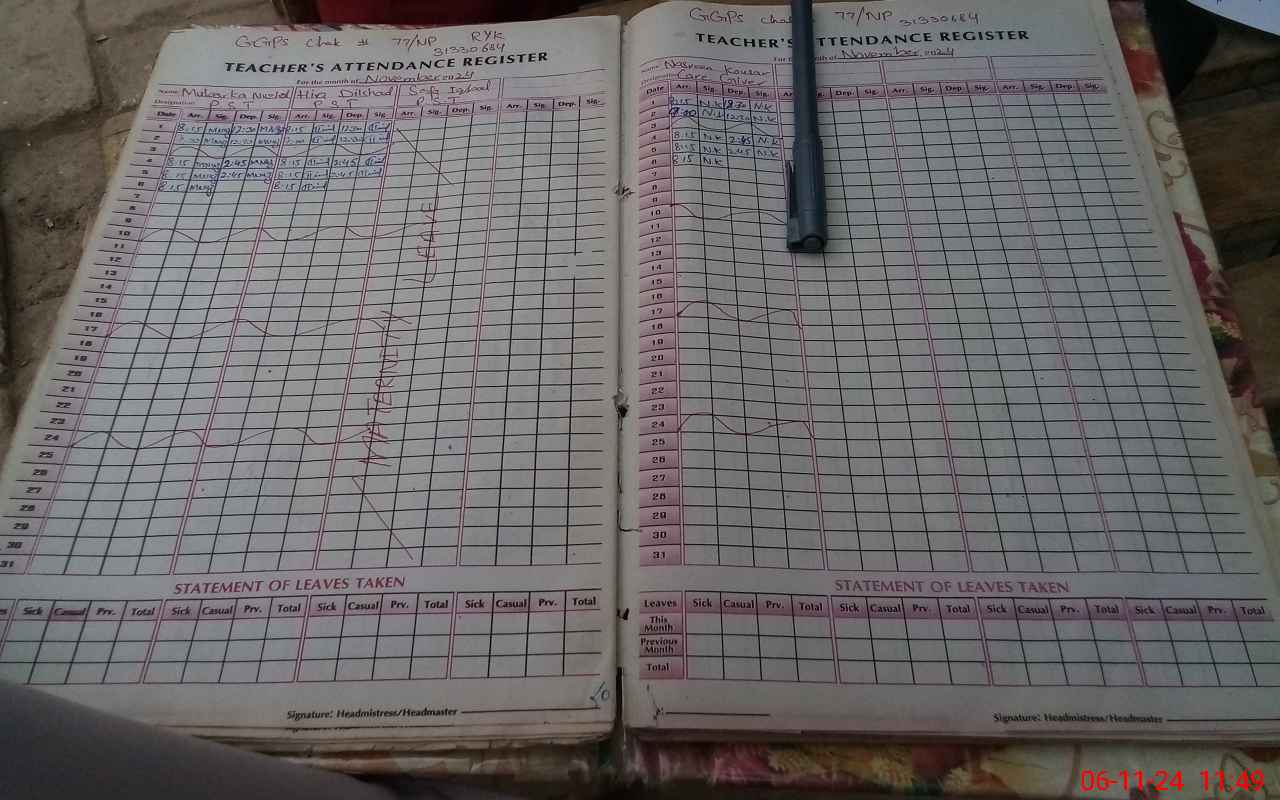 GGPS Chak # 77/NP RYK
31330684
TEACHER'S ATTENDANCE REGISTER
For the month of November 2024
Name Hira Dilshad Safa Iqbal
Designation P S T P S T P S T
Date Arr. Sig. Dep. Sig. Arr. Sig. Dep. Sig. Arr. Sig. Dep. Sig. Arr. Sig. Dep. Sig.
1 8:15 12:30 8:15 12:30
2 12:30 12:30
3
4 8:15 2:45 8:15 2:45
5 8:15 2:45 8:15 2:45
6 8:15 8:15
7
8
9
10
11
12
13
14
15
16
17
18
19
20
21
22
23
24
25
26
27
28
29
30
31
MATERNITY LEAVE
STATEMENT OF LEAVES TAKEN
Sick Casual Prv. Total Sick Casual Prv. Total Sick Casual Prv. Total Sick Casual Prv. Total
Signature: Headmistress/Headmaster
GGPS Chak 77/NP 31330684
TEACHER'S ATTENDANCE REGISTER
For the month of November 2024
Name Nasreen Kousar
Designation Care Giver
Date Arr. Sig. Dep. Sig. Arr. Sig. Dep. Sig. Arr. Sig. Dep. Sig. Arr. Sig. Dep. Sig.
1 8:15 N.K 12:30 N.K
2 N.K 12:30 N.K
3
4 8:15 N.K 2:45 N.K
5 8:15 N.K 2:45 N.K
6 8:15 N.K
7
8
9
10
11
12
13
14
15
16
17
18
19
20
21
22
23
24
25
26
27
28
29
30
31
STATEMENT OF LEAVES TAKEN
Leaves Sick Casual Prv. Total Sick Casual Prv. Total Sick Casual Prv. Total Sick Casual Prv. Total
This Month
Previous Month
Total
Signature: Headmistress/Headmaster
06-11-24 11:49